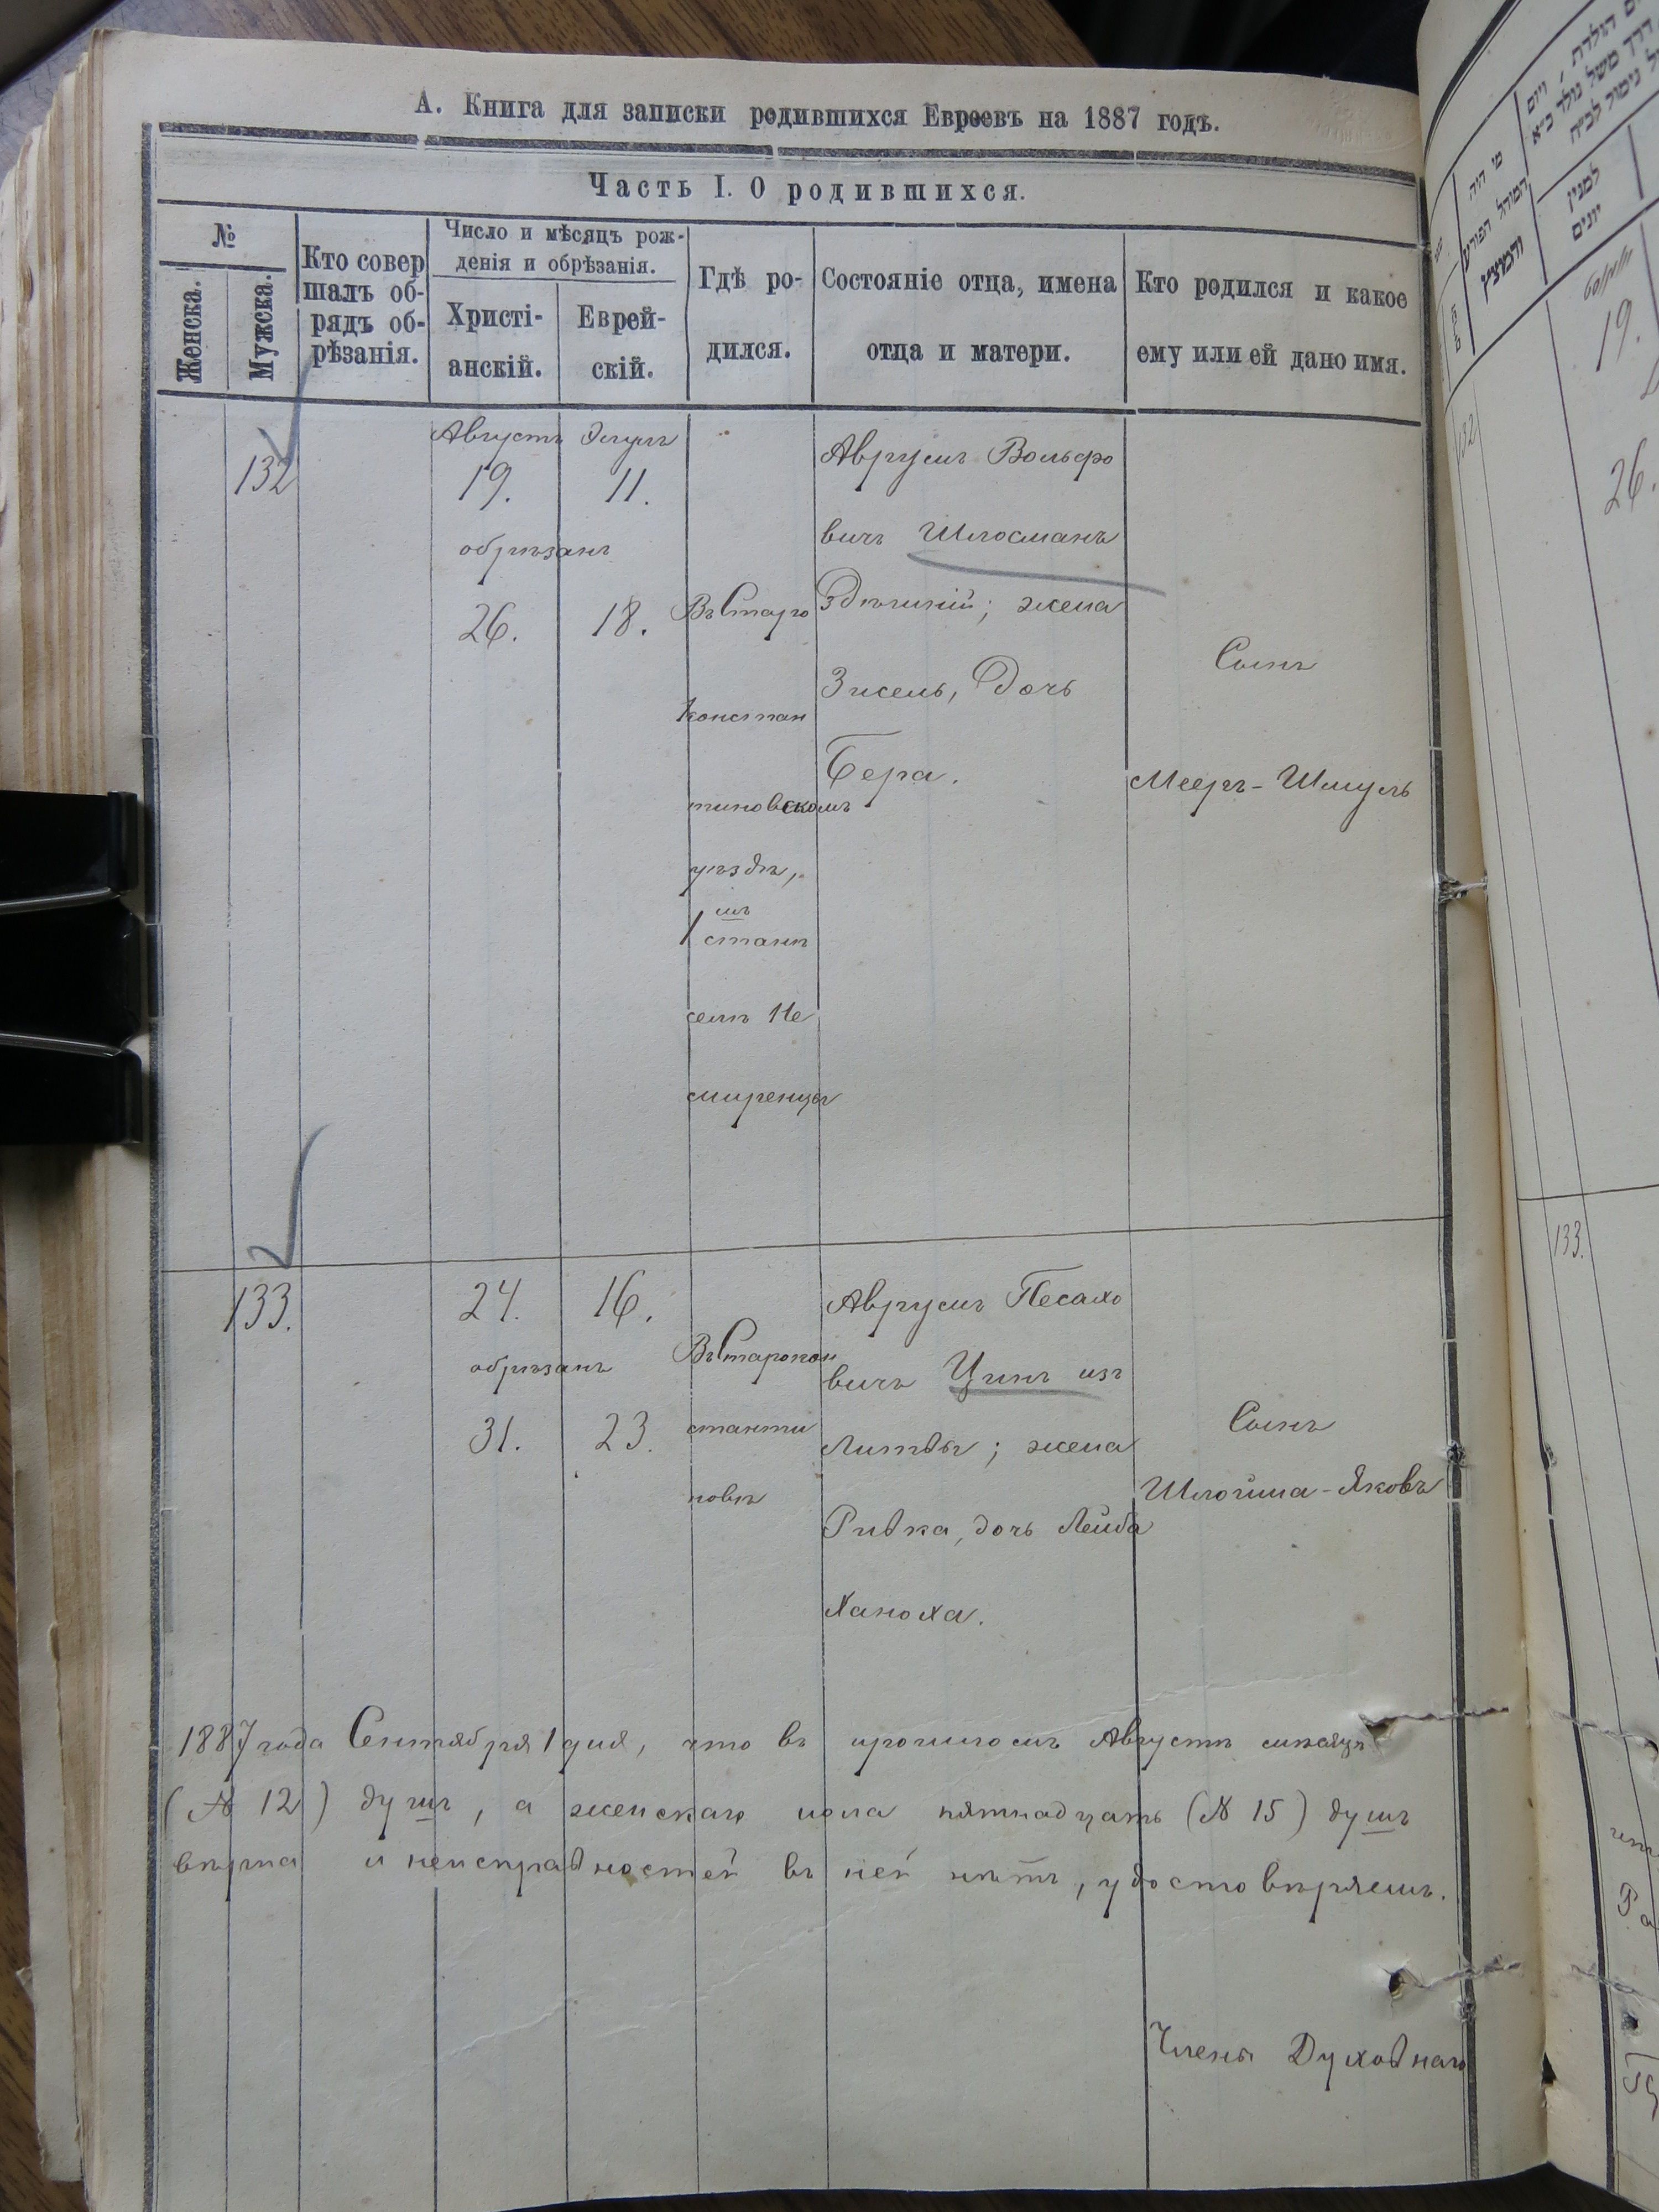 А. Книга для записки родившихся Евреевъ на 1887 годъ.
Часть I. О родившихся.
№
Женска.
Мужска.
Кто совер
шалъ об-
рядъ об-
рѣзанія.
Число и мѣсяцъ рож-
денія и обрѣзанія.
Христі-
анскій.
Еврей-
скій.
Гдѣ ро-
дился.
Состояніе отца, имена
отца и матери.
Кто родился и какое
ему или ей дано имя.
132
Августъ
19.
обрѣзанъ
26.
Элулъ
11.
18.
Въ Старо
констан
тиновскомъ
уѣздѣ,
1 мъ
станѣ
селѣ Не
миренцы
Аврумъ Вольфо
вичъ Шлосманъ
Здѣшній; жена
Зисель, Дочь
Бера.
Сынъ
Мееръ-Шмуль
133.
24.
обрѣзанъ
31.
16.
23.
Въ Старокон
станти
новѣ
Аврумъ Песахо
вичъ Цинъ изъ
Литвы; жена
Ривка, дочь Лейба
Ханоха.
Сынъ
Шлойма-Яковъ
1887 года Сентября 1 дня, что въ прошломъ Августѣ мѣсяцѣ
(№ 12) душъ, а женскаго пола пятнадцать (№ 15) душъ
вѣрна и неисправностей въ ней нѣтъ, удостовѣряемъ.
Члены Духовнаго
132
19.
26.
133.